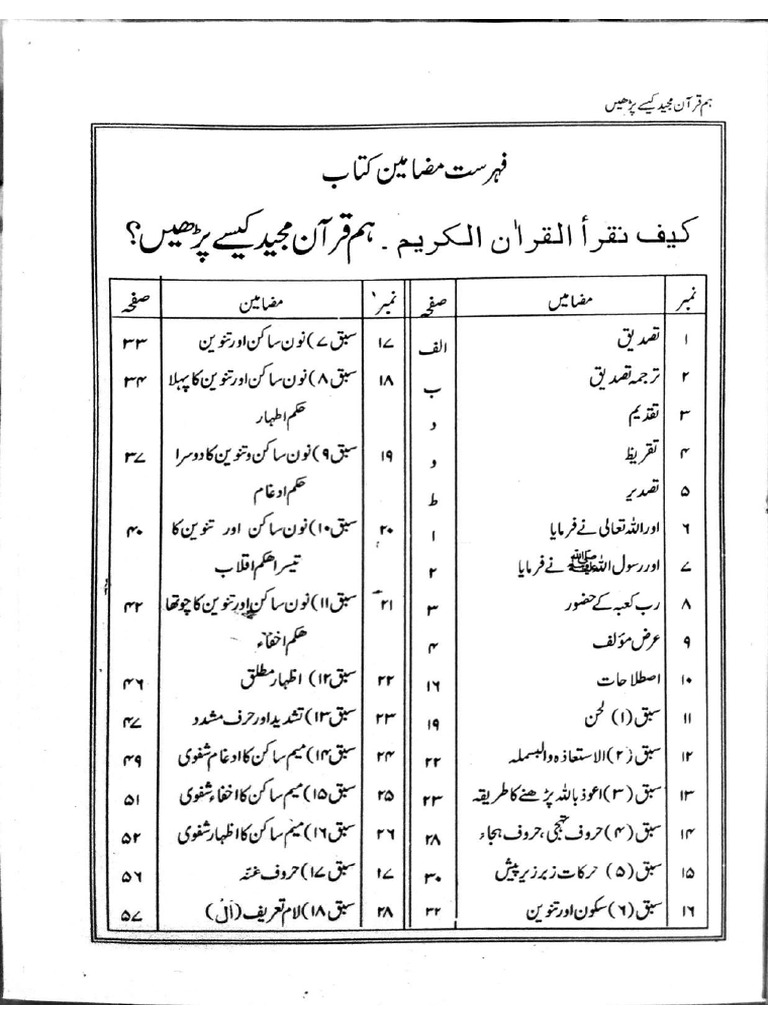 ہم قرآن مجید کیسے پڑھیں
فہرست مضامین کتاب
كيف نقرأ القرآن الكريم ۔ ہم قرآن مجید کیسے پڑھیں؟
نمبر مضامیں صفحہ
۱ تصدیق الف
۲ ترجمہ تصدیق ب
۳ تقدیم د
۴ تقریظ و
۵ تصدیر ط
۶ اور اللہ تعالی نے فرمایا ۱
۷ اور رسول اللہ ﷺ نے فرمایا ۲
۸ رب کعبہ کے حضور ۳
۹ عرض مؤلف ۴
۱۰ اصطلاحات ۱۶
۱۱ سبق (۱) لحن ۱۹
۱۲ سبق (۲) الاستعاذہ والبسملہ ۲۲
۱۳ سبق (۳) اعوذ باللہ پڑھنے کا طریقہ ۲۳
۱۴ سبق (۴) حروف تہجی، حروف ہجاء ۲۸
۱۵ سبق (۵) حرکات زبر زیر پیش ۳۰
۱۶ سبق (۶) سکون اور تنوین ۳۲
نمبر مضامین صفحہ
۱۷ سبق ۷) نون ساکن اور تنوین ۳۳
۱۸ سبق ۸) نون ساکن اور تنوین کا پہلا ۳۴
حکم اظہار
۱۹ سبق ۹) نون ساکن و تنوین کا دوسرا ۳۷
حکم ادغام
۲۰ سبق ۱۰) نون ساکن اور تنوین کا ۴۰
تیسرا حکم اقلاب
۲۱ سبق ۱۱) نون ساکن اور تنوین کا چوتھا ۴۲
حکم اخفاء
۲۲ سبق ۱۲) اظہار مطلق ۴۶
۲۳ سبق ۱۳) تشدید اور حرف مشدد ۴۷
۲۴ سبق ۱۴) میم ساکن کا ادغام شفوی ۴۹
۲۵ سبق ۱۵) میم ساکن کا اخفاء شفوی ۵۱
۲۶ سبق ۱۶) میم ساکن کا اظہار شفوی ۵۲
۱۷ سبق ۱۷) حروف غنہ ۵۶
۲۸ سبق ۱۸) لام تعریف (اَلْ) ۵۷